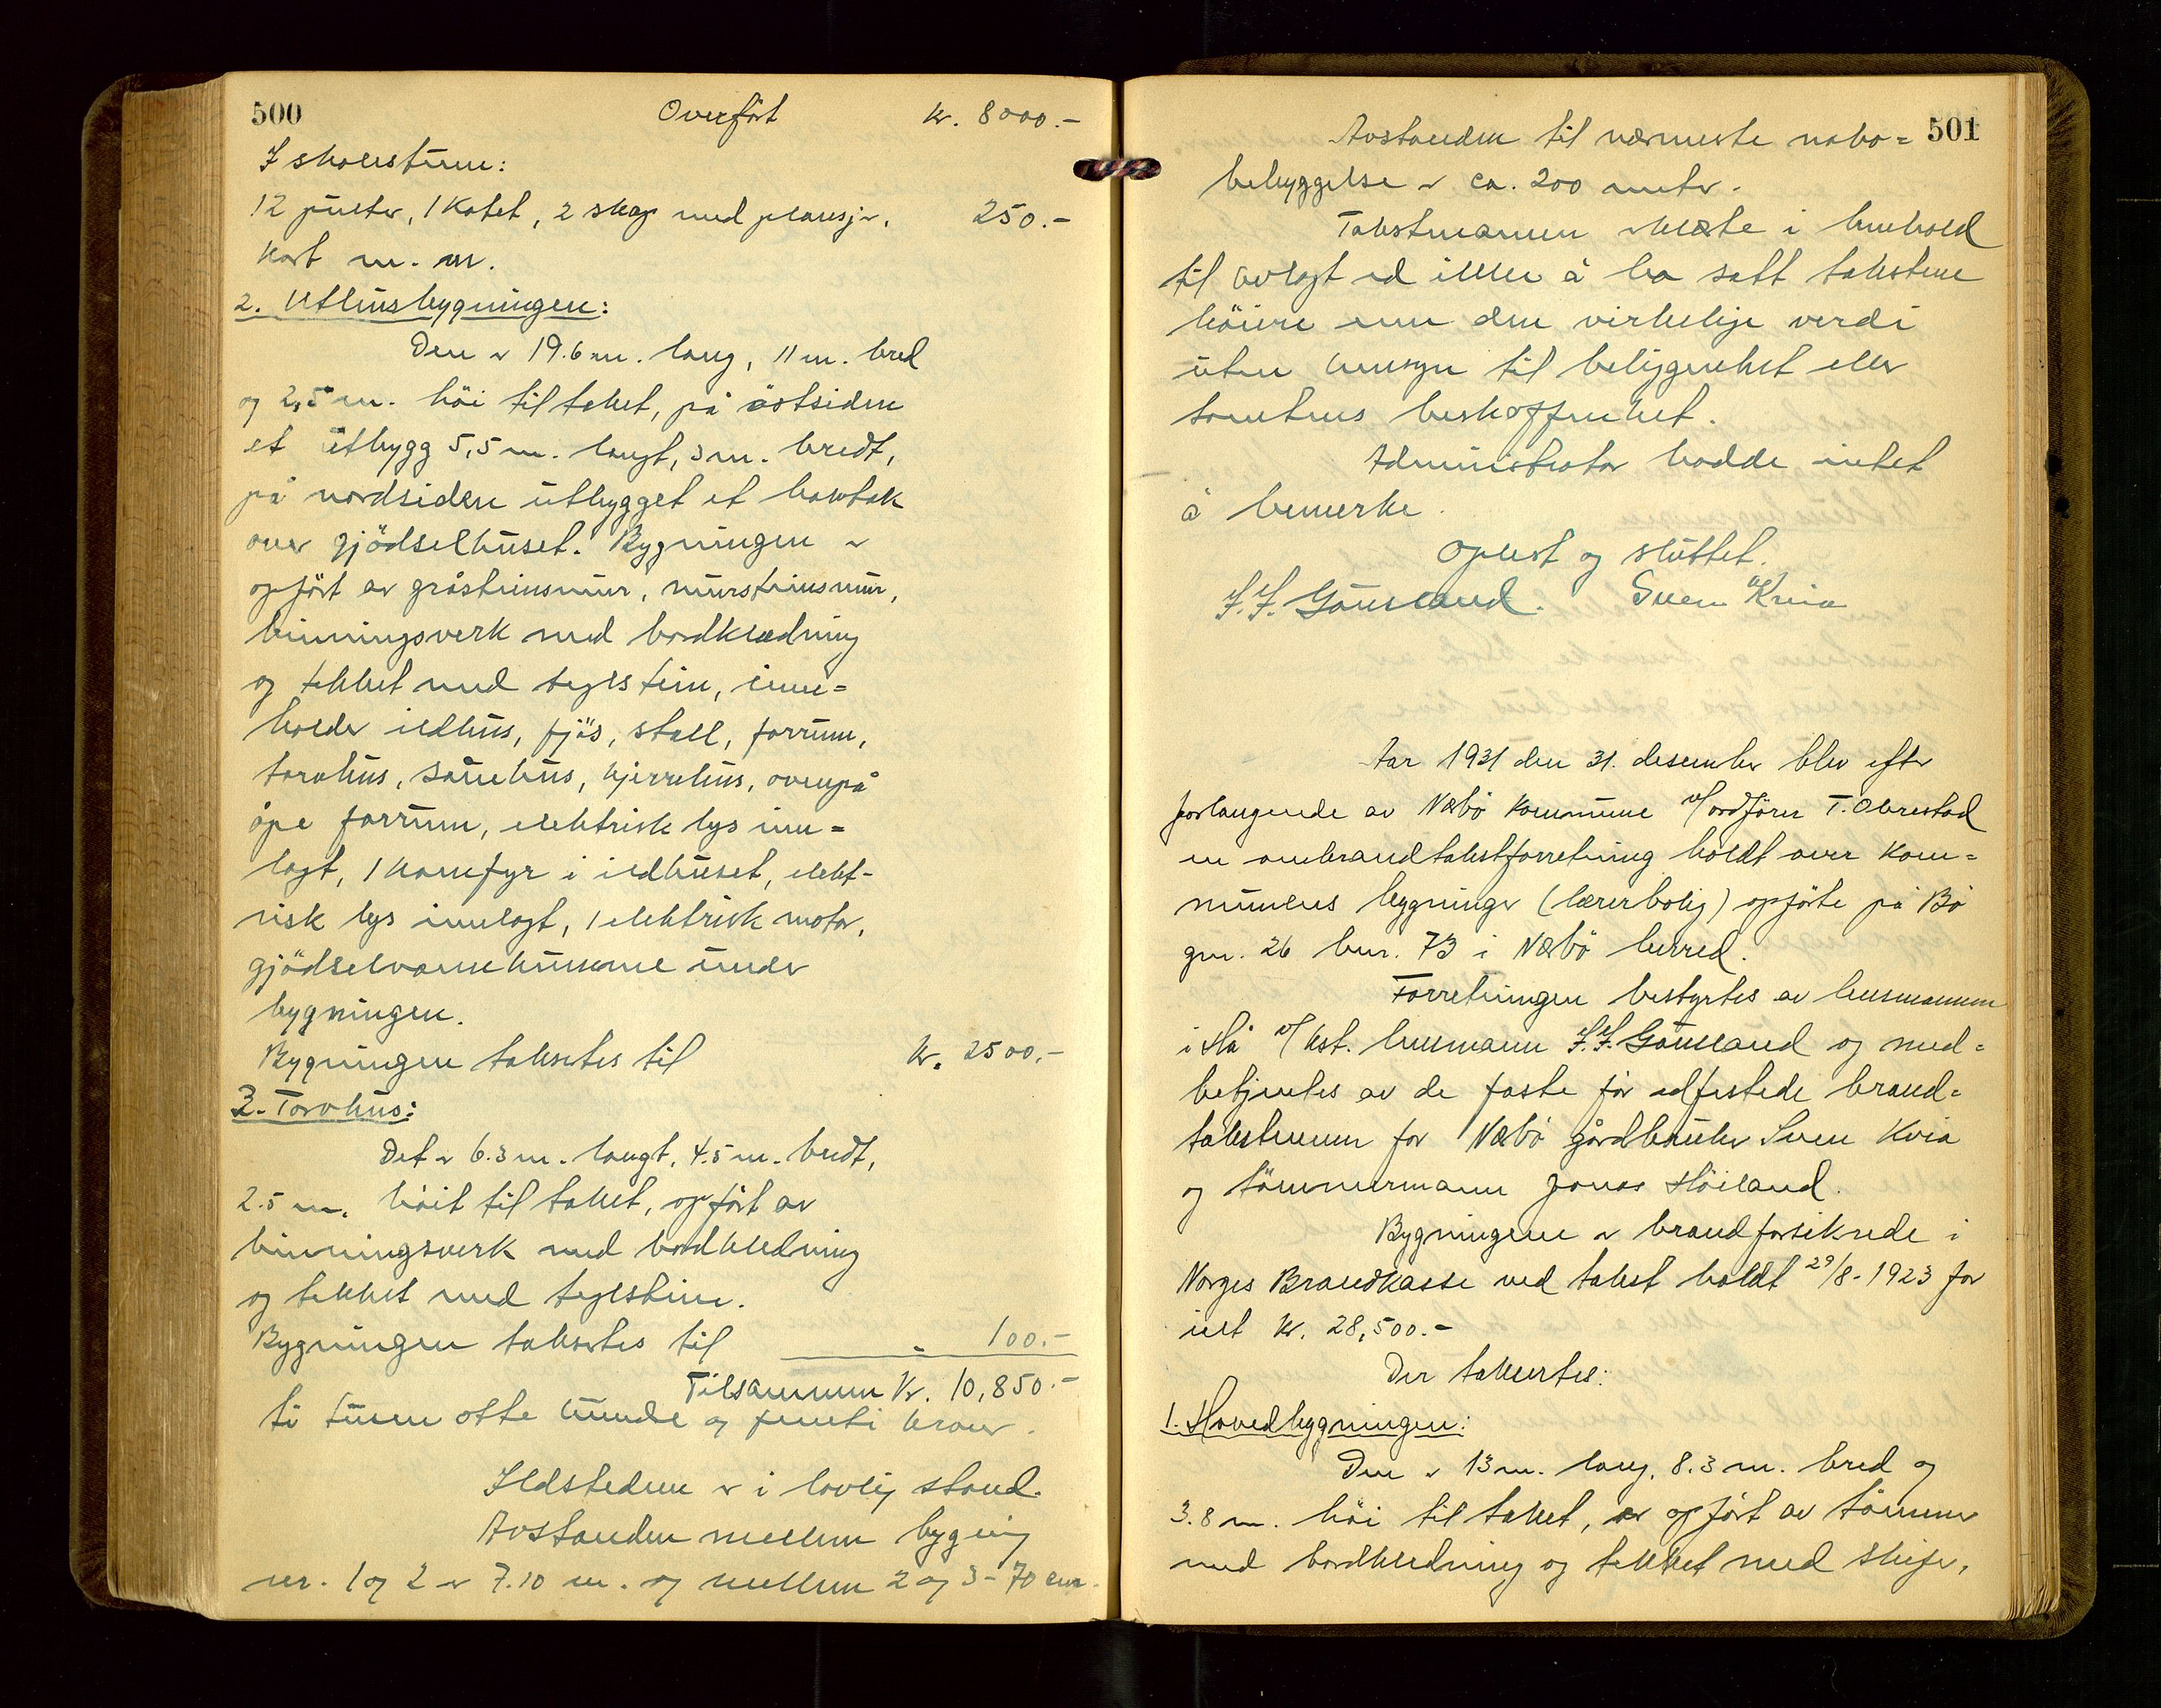 500 Overført kr. 8000.-
I skolestuen:
12 pulter, 1 Katet, 2 skap med plansjer, 250.-
Kart m. m.
2. Uthusbygningen:
Den er 19.6 m. lang, 11 m. bred
og 2,5 m. höi til taket, på östsiden
et utbygg 5,5 m. langt, 3 m. bredt,
på nordsiden utbygget et halvtak
over gjödselhuset. Bygningen er
opfört av gråsteinsmur, mursteinsmur,
binningsverk med bordklædning
og tekket med teglstein, inne=
holder ildhus, fjös, stall, forrum,
torvhus, sauehus, kjerrehus, ovenpå
åpe forrum, elektrisk lys inn=
lagt, 1 komfyr i ildhuset, elekt-
risk lys innlagt, 1 elektrisk motor,
gjödselvannkumme under
bygningen.
Bygningen takseres til kr. 2500.-
3. Torvhus:
Det er 6.3 m. langt, 4.5 m. bredt,
2.5 m. höit til taket, opfört av
binningsverk med bordkledning
og tekket med teglstein.
Bygningen takseres til " 100.-
Tilsammen Kr. 10,850.-
ti tusen otte hundre og femti kroner.
Ildstedene er i lovlig stand.
Avstanden mellem bygning
nr. 1 og 2 er 7.10 m. og mellem 2 og 3 - 70 cm.
501
Avstanden til nærmeste nabo=
bebyggelse er ca. 200 meter.
Takstmannen erklærte i henhold
til avlagt ed ikke å ha satt takstene
höiere enn den virkelige verdi
uten hensyn til beliggenhet eller
tomtens beskaffenhet.
Administrator hadde intet
å bemerke.
Oplest og sluttet.
J. J. Gausland. Sven Kvia
Aar 1931 den 31. desember blev efter
forlangende av Nærbö kommune v/ordförer T. Obrestad
en ombrandtakstforretning holdt over Kom=
munens bygninger (lærerbolig) opförte på Bö
gnr. 26 bnr. 73 i Nærbö herred.
Forretningen bestyrtes av lensmannen
i Hå v/kst. lensmann J. J. Gausland og med=
betjentes av de faste för edfestede brand=
takstmenn for Nærbö gårdbruker Sven Kvia
og tömmermann Jonas Höiland.
Bygningene er brandforsikrede i
Norges Brandkasse ved takst holdt 29/8-1923 for
ialt kr. 28,500.-
Der takseres:
1. Hovedbygningen:
Den er 13 m. lang, 8.3 m. bred og
3.8 m. höi til taket, er opfört av tömmer
med bordkledning og tekket med skifer,